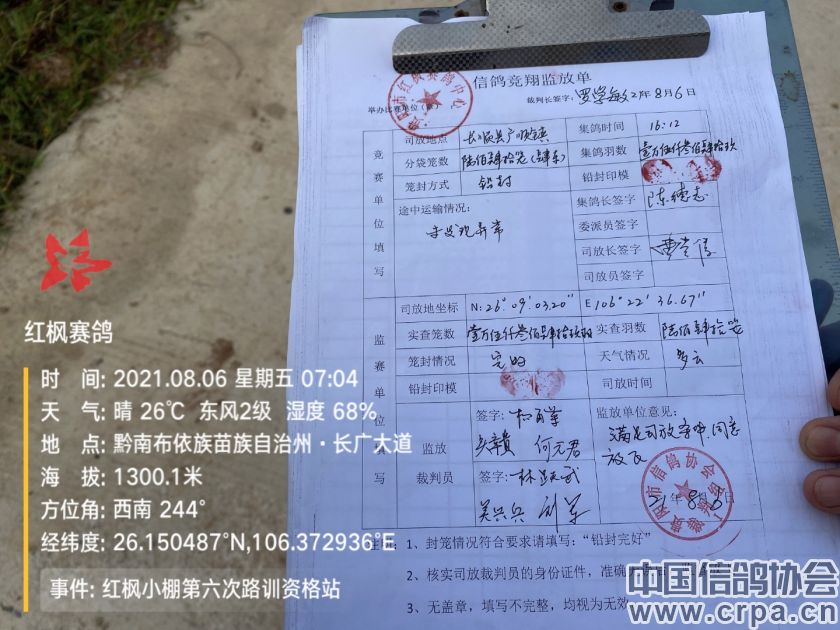 信鸽竞翔监放单
裁判长签字: 罗学敏 21年8月6日
举办比赛单位(章)
竞赛单位填写
司放地点 长顺县广顺镇 集鸽时间 16:12
分袋笼数 陆佰肆拾笼 集鸽羽数 壹万伍仟叁佰肆拾玖
笼封方式 铅封 铅封印模
途中运输情况: 未发现异常
集鸽长签字 陈德志
委派员签字
司放长签字
司放员签字
监赛单位填写
司放地坐标 N:26°09′03.20″ E106°22′36.67″
实查笼数 壹万伍仟叁佰肆拾玖羽 实查羽数 陆佰肆拾笼
笼封情况 完好 天气情况 多云
铅封印模 司放时间
监放 签字:
何元君
裁判员 签字:
监放单位意见:
满足司放条件,同意放飞
21年8月6日
1、封笼情况符合要求请填写:“铅封完好”
2、核实司放裁判员的身份证件,准确
3、无盖章,填写不完整,均视为无效
红枫赛鸽
时 间: 2021.08.06 星期五 07:04
天 气: 晴 26℃ 东风2级 湿度 68%
地 点: 黔南布依族苗族自治州·长广大道
海 拔: 1300.1米
方位角: 西南 244°
经纬度: 26.150487°N,106.372936°E
事件: 红枫小棚第六次路训资格站
中国信鸽协会
www.crpa.cn